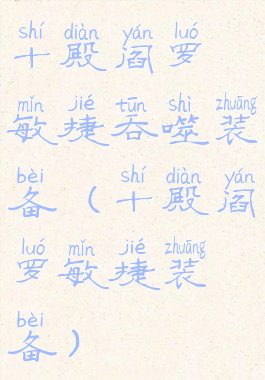 shí diàn yán luó
十殿阎罗
mǐn jié tūn shì zhuāng
敏捷吞噬装
bèi shí diàn yán
备(十殿阎
luó mǐn jié zhuāng
罗敏捷装
bèi
备)